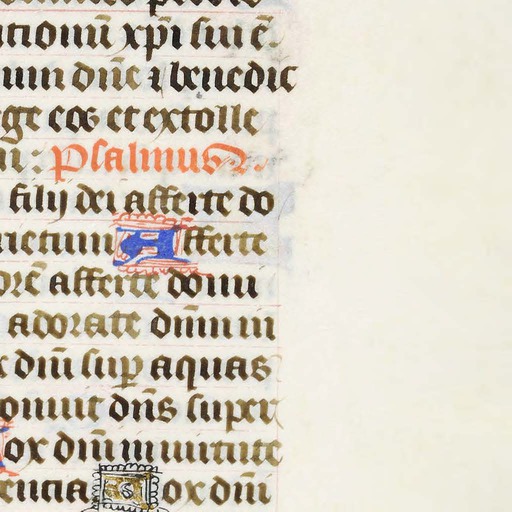 tionū xp̄i sui ē.
um dn̄e ⁊ benedic
ge eos et extolle
Psalmus D.
filij dei afferte do
rietum Afferte
orē afferte domi
adorate dn̄m in
dn̄i sup̄ aquas
onuit dn̄s super
ox dn̄i in uirtute
encia Vox dn̄i